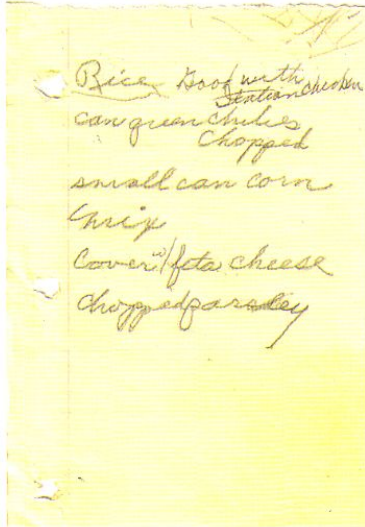 Rice Good with
Station Chicken
can green chilies
Chopped
small can corn
Mix
Cover w/ feta cheese
chopped parsley